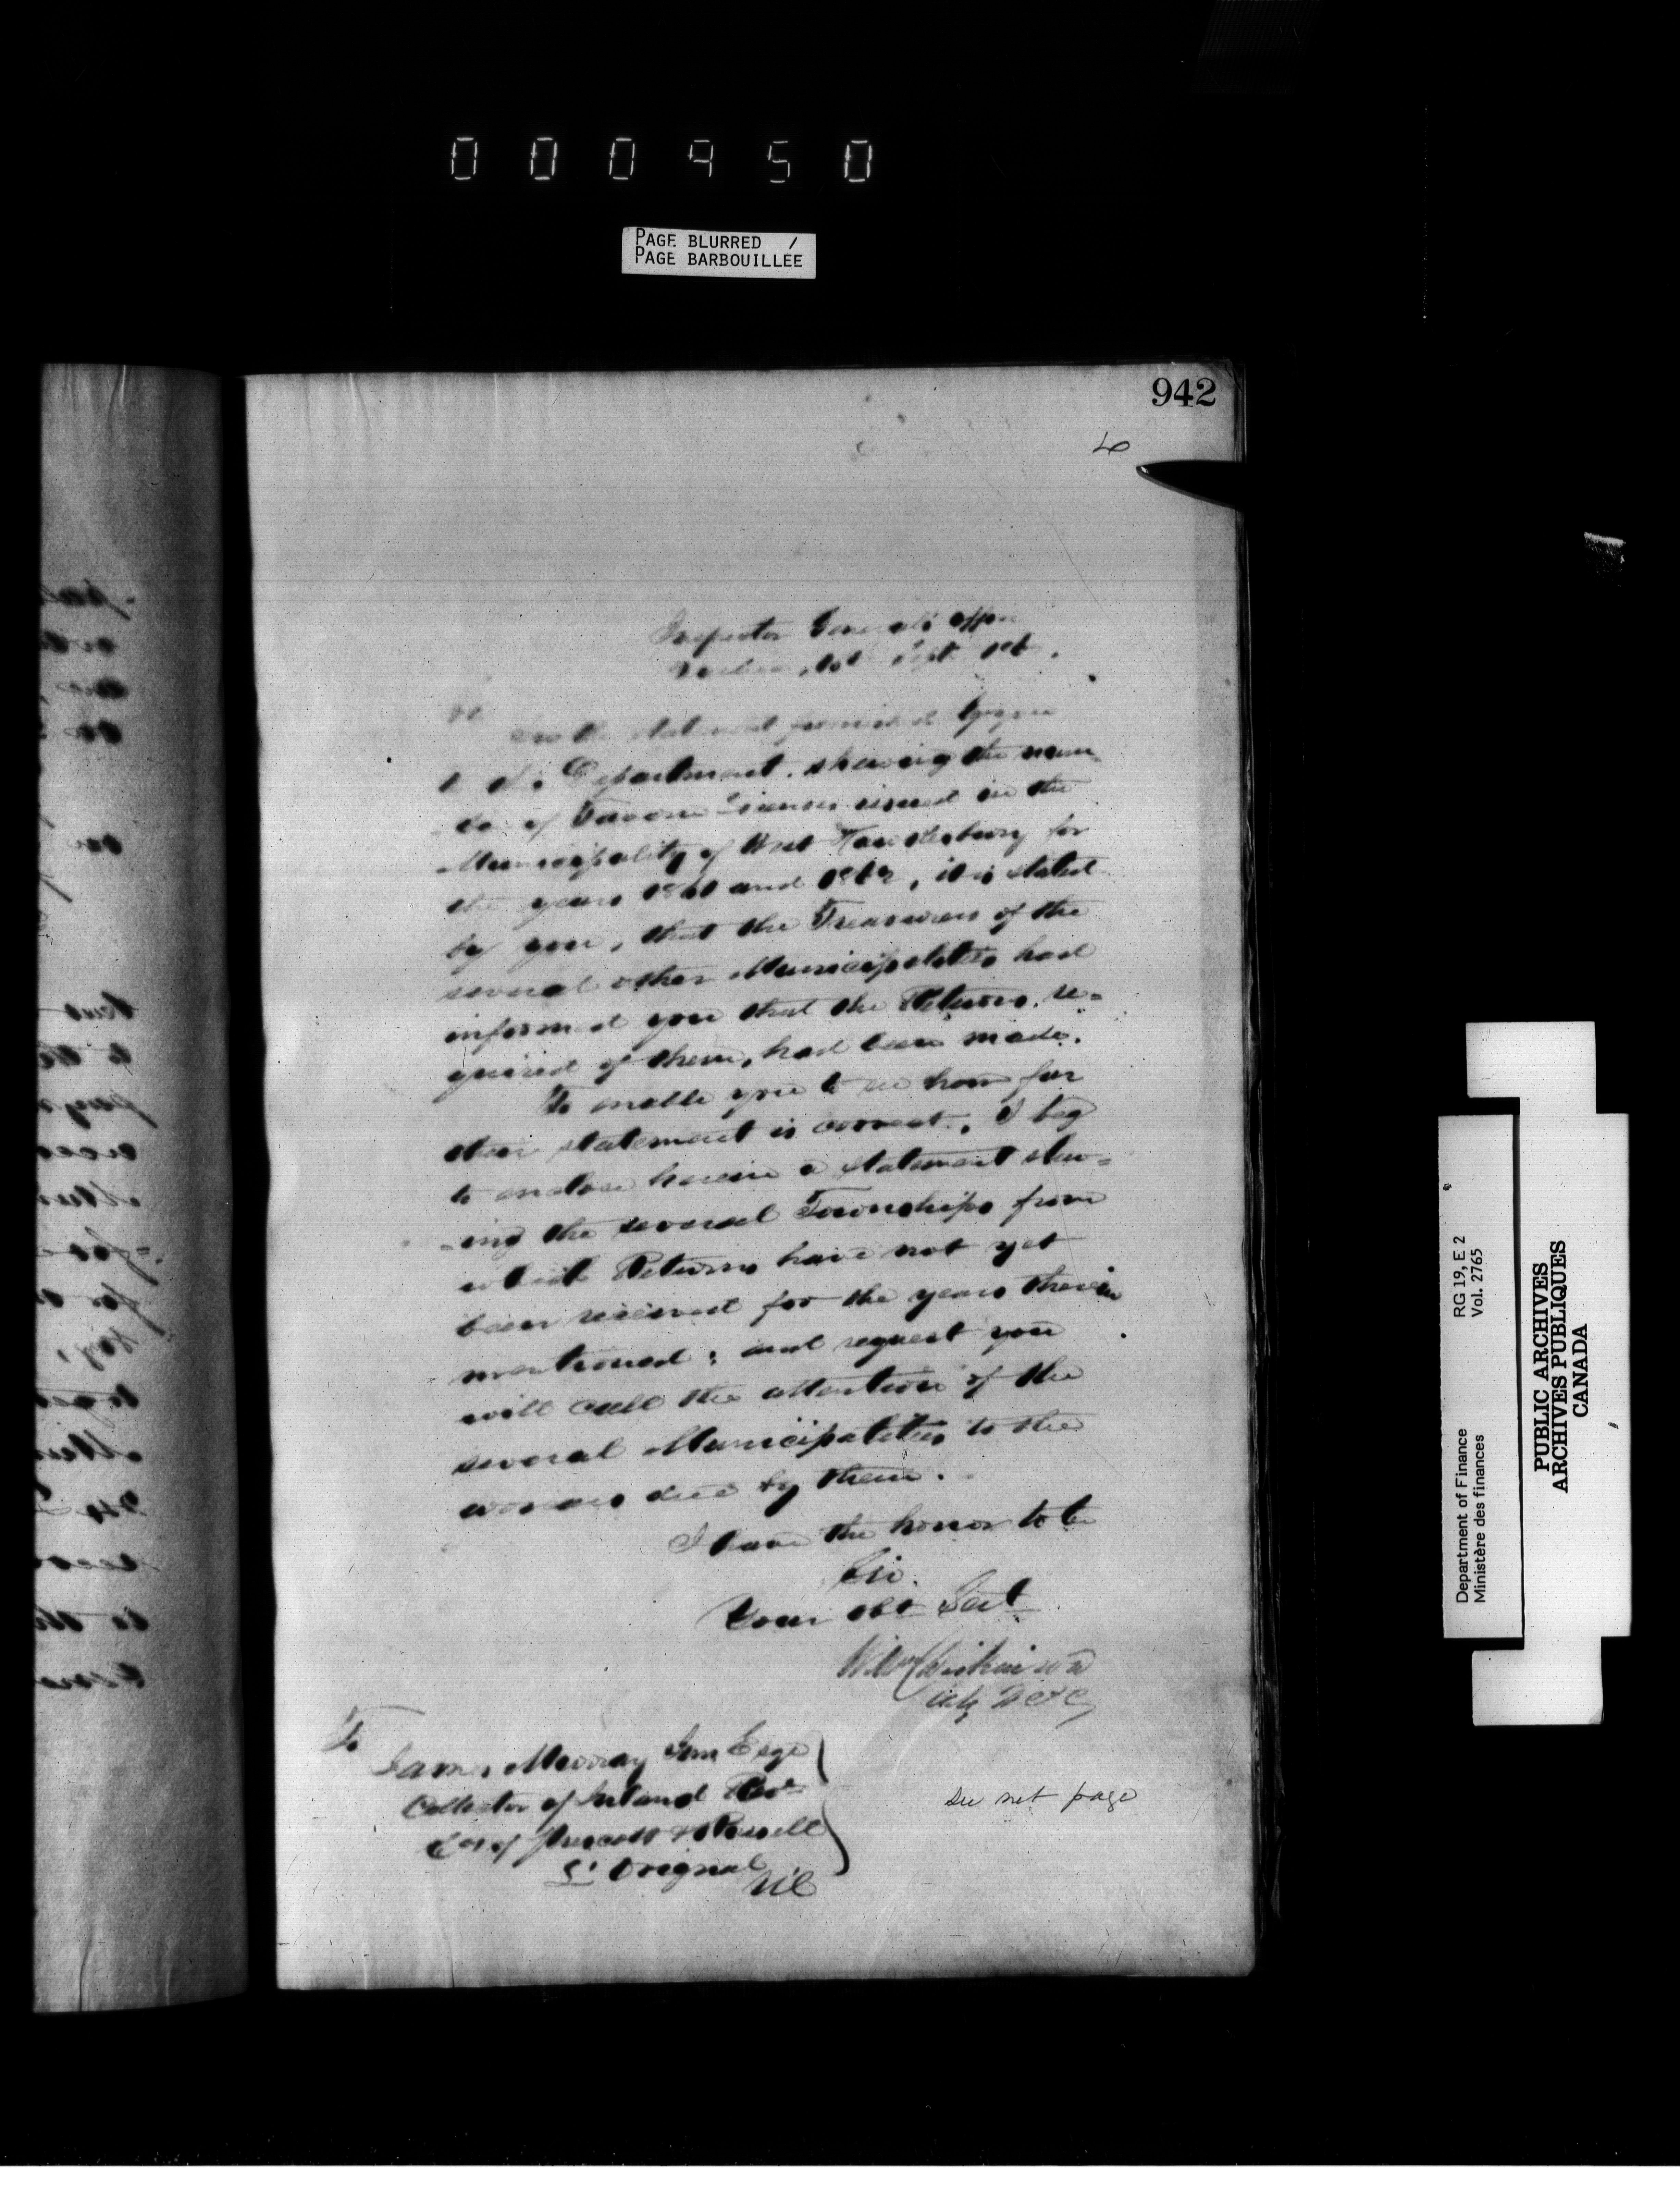 000950
PAGE BLURRED /
PAGE BARBOUILLEE
942
Inspector General's Office
Sept.
furnished by you
Department, shewing the num
of Tavern Licenses issued in the
Municipality of West Hawkesbury for
the years 1861 and 1862, it is stated
by you, that the Treasurers of the
several other Municipalities had
informed you that the Returns, re=
quired of them, had been made.
To enable you to see how far
their statement is correct, I beg
to enclose herein a statement shew=
=ing the several Townships from
which Returns have not yet
been received for the years therein
mentioned; and request you
will call the attention of the
several Municipalities to the
due by them.
I have the honor to be
Sir.
Your obt Servt
Wm Dickinson
To
James Murray Esqe
Collector of Inland Reve
Cos of Prescott & Russell
L'Orignal
see net page
Department of Finance RG 19, E 2
Ministère des finances Vol. 2765
PUBLIC ARCHIVES
ARCHIVES PUBLIQUES
CANADA